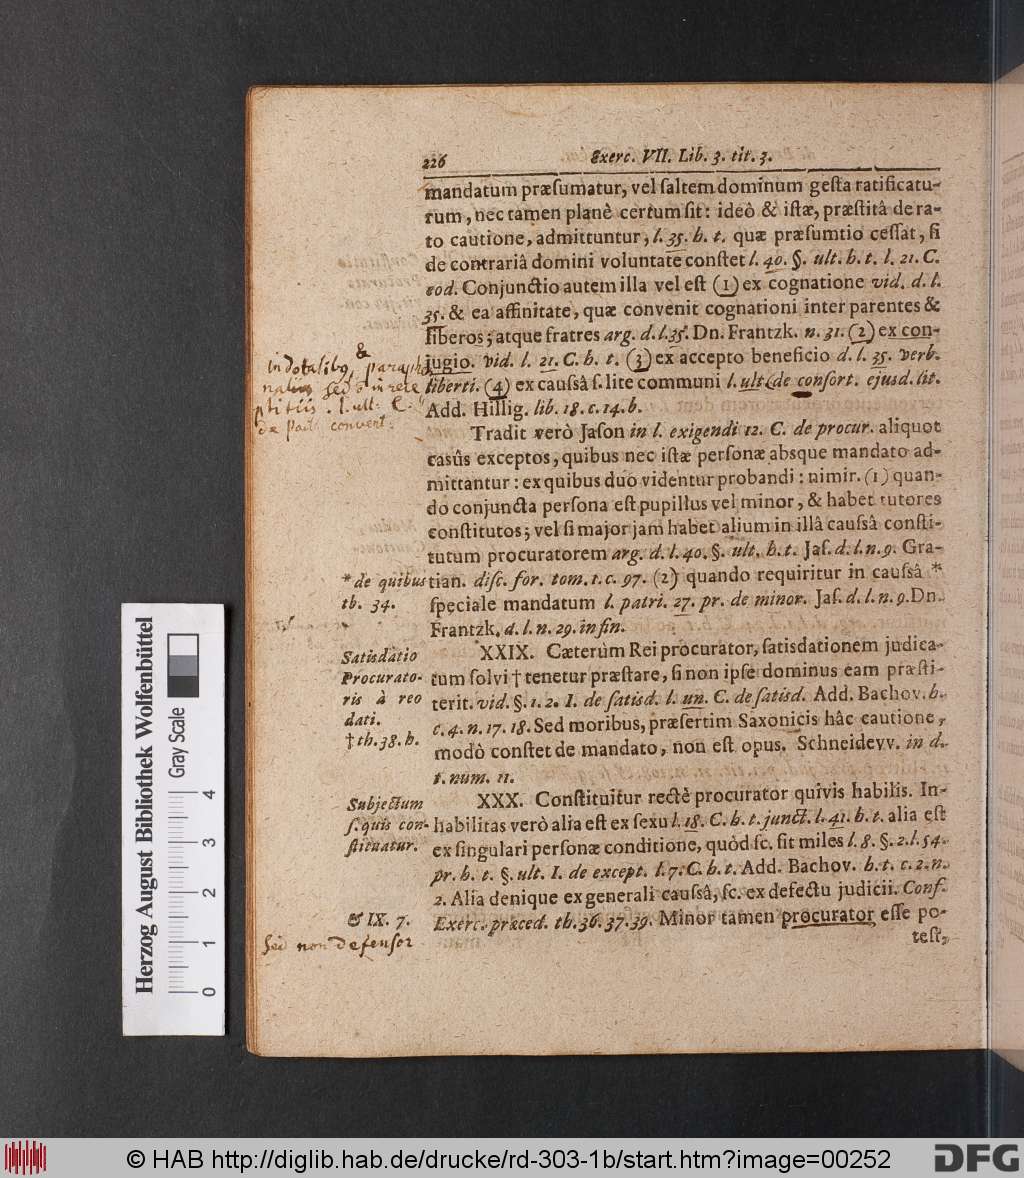 226 Exerc. VII. Lib. 3. tit. 3.
mandatum præsumatur, vel saltem dominum gesta ratificatu-
rum, nec tamen planè certum sit: ideò & istæ, præstitâ de ra-
to cautione, admittuntur, l. 35. h. t. quæ præsumtio cessat, si
de contrariâ domini voluntate constet l. 40. §. ult. h. t. l. 21. C.
eod. Conjunctio autem illa vel est (1) ex cognatione vid. d. l.
35. & ea affinitate, quæ convenit cognationi inter parentes &
liberos; atque fratres arg. d. l. 35. Dn. Frantzk. n. 31. (2) ex con-
jugio. vid. l. 21. C. h. t. (3) ex accepto beneficio d. l. 35. verb.
liberti. (4) ex caussâ s. lite communi l. ult. de consort. ejusd. lit.
Add. Hillig. lib. 18. c. 14. b.
in dotalibus, & paraphe
nalibus sed in rece
ptitiis. l. ult. C.
de pact. convent.
Tradit verò Jason in l. exigendi 12. C. de procur. aliquot
casûs exceptos, quibus nec istæ personæ absque mandato ad-
mittantur: ex quibus duo videntur probandi: nimir. (1) quan-
do conjuncta persona est pupillus vel minor, & habet tutores
constitutos; vel si major jam habet alium in illâ caussâ consti-
tutum procuratorem arg. d. l. 40. §. ult. h. t. Jas. d. l. n. 9. Gra-
tian. disc. for. tom. 1. c. 97. (2) quando requiritur in caussâ *
speciale mandatum l. patri. 27. pr. de minor. Jas. d. l. n. 9. Dn.
Frantzk. d. l. n. 29. in fin.
* de quibus
th. 34.
XXIX. Cæterùm Rei procurator, satisdationem judica-
tum solvi † tenetur præstare, si non ipse dominus eam præsti-
terit. vid. §. 1. 2. I. de satisd. l. un. C. de satisd. Add. Bachov. h.
c. 4. n. 17. 18. Sed moribus, præsertim Saxonicis hâc cautione,
modò constet de mandato, non est opus. Schneidevv. in d.
t. num. 11.
Satisdatio
Procurato-
ris à reo
dati.
† th. 38. h.
XXX. Constituitur rectè procurator quivis habilis. In-
habilitas verò alia est ex sexu l. 18. C. h. t. junct. l. 41. h. t. alia est
ex singulari personæ conditione, quòd sc. sit miles l. 8. §. 2. l. 54.
pr. h. t. §. ult. I. de except. l. 7. C. h. t. Add. Bachov. h. t. c. 2. n.
2. Alia denique ex generali caussâ, sc. ex defectu judicii. Conf.
Exerc. præced. th. 36. 37. 39. Minor tamen procurator esse po-
test,
Subjectum
s. quis con-
stituatur.
& IX. 7.
sed non defensor
Herzog August Bibliothek Wolfenbüttel
Gray Scale
0 1 2 3 4
© HAB http://diglib.hab.de/drucke/rd-303-1b/start.htm?image=00252
DFG